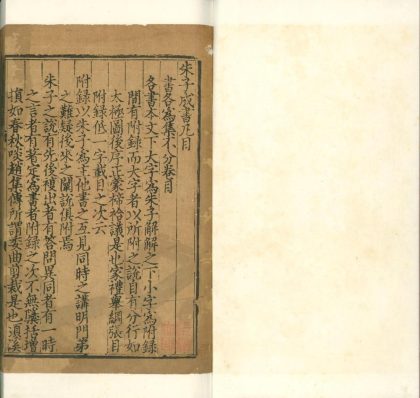 朱子成書凡目
書各為集不分卷目
各書本文下大字為朱子解解之下小字為附錄
間有附錄而大字者以所附之說自有分行如
太極圖後序正蒙禘祫議是也家禮舉綱張目
附錄低一字截目之次云
附錄以朱子為主他書之互見同時之講明門弟
之難疑後來之闡說俱附焉
朱子之說有先後複出者有答問異同者有一時
之言者有著定為書者附錄之次不無隱括增
損如春秋啖趙集傳所謂委曲剪裁是也濂溪